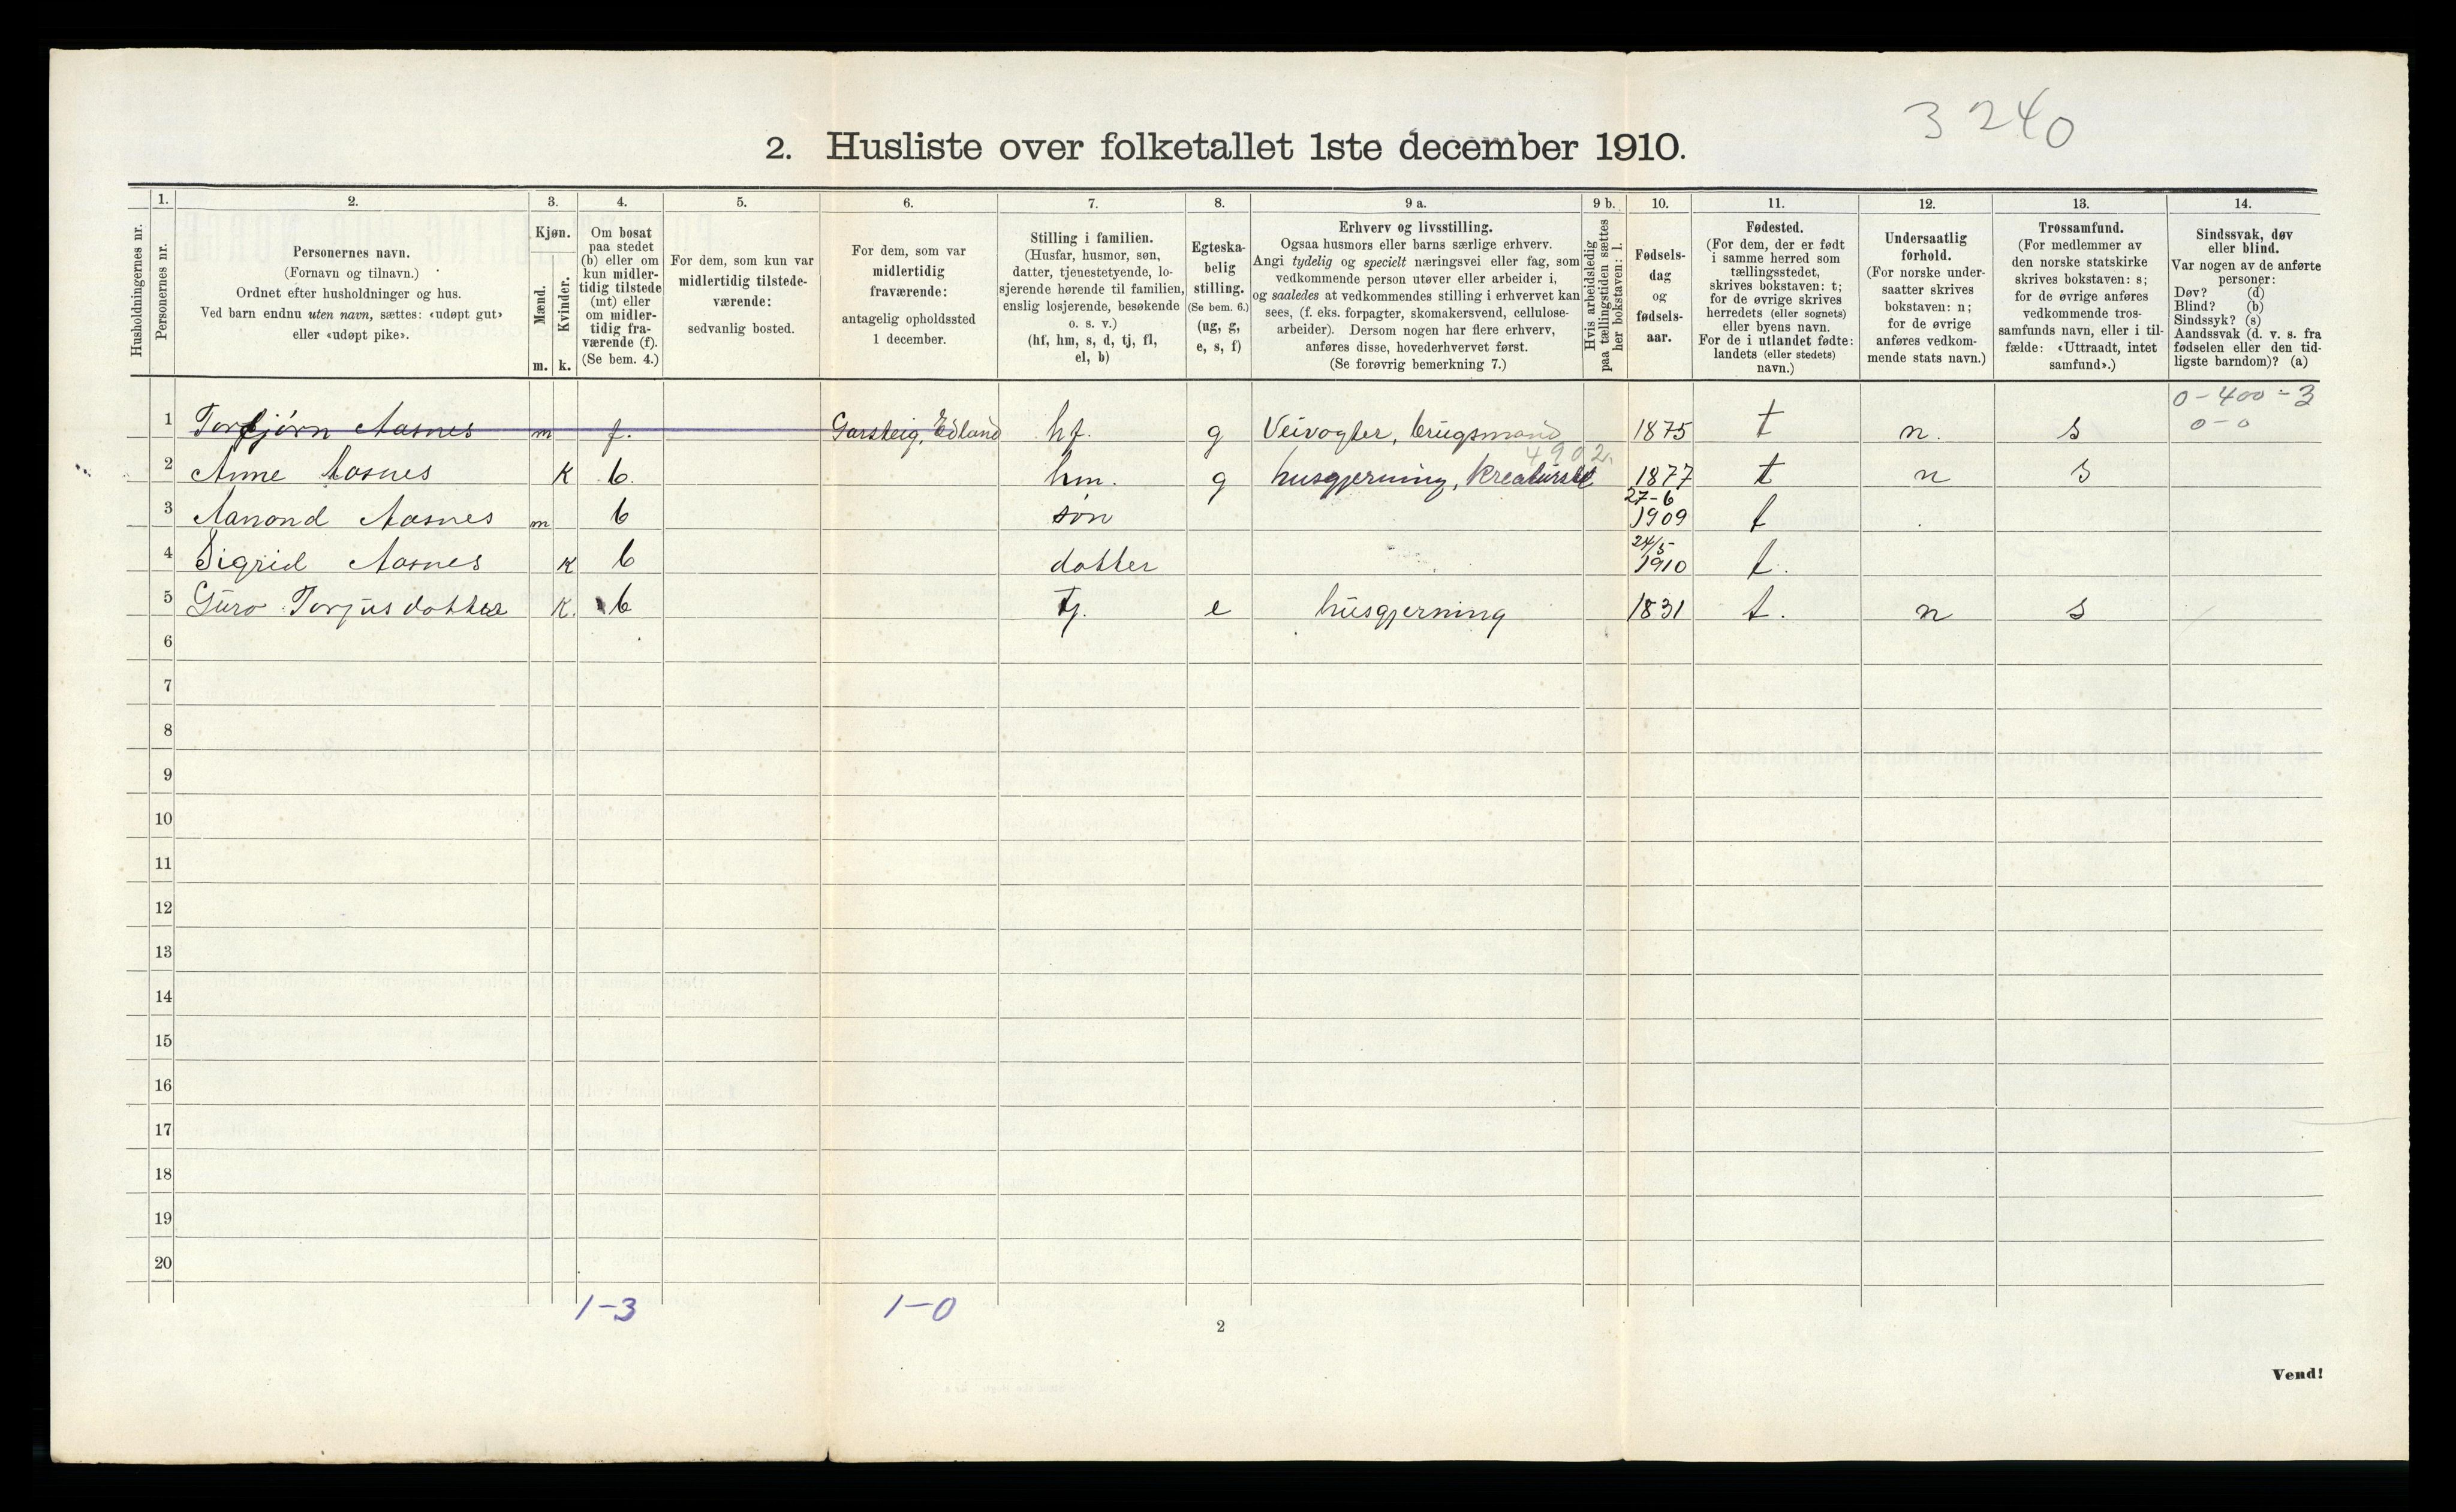 3240
2. Husliste over folketallet 1ste december 1910.
Husholdningernes nr.
1.
Personernes nr.
2.
Personernes navn.
(Fornavn og tilnavn.)
Ordnet efter husholdninger og hus.
Ved barn endnu uten navn, sættes: «udøpt gut»
eller «udøpt pike».
3.
Kjøn.
Mænd.
m.
Kvinder.
k.
4.
Om bosat
paa stedet
(b) eller om
kun midler-
tidig tilstede
(mt) eller
om midler-
tidig fra-
værende (f).
(Se bem. 4.)
5.
For dem, som kun var
midlertidig tilstede-
værende:
sedvanlig bosted.
6.
For dem, som var
midlertidig
fraværende:
antagelig opholdssted
1 december.
7.
Stilling i familien.
(Husfar, husmor, søn,
datter, tjenestetyende, lo-
sjerende hørende til familien,
enslig losjerende, besøkende
o. s. v.)
(hf, hm, s, d, tj, fl,
el, b)
8.
Egteska-
belig
stilling.
(Se bem. 6.)
(ug, g,
e, s, f)
9 a.
Erhverv og livsstilling.
Ogsaa husmors eller barns særlige erhverv.
Angi tydelig og specielt næringsvei eller fag, som
vedkommende person utøver eller arbeider i,
og saaledes at vedkommendes stilling i erhvervet kan
sees, (f. eks. forpagter, skomakersvend, cellulose-
arbeider). Dersom nogen har flere erhverv,
anføres disse, hovederhvervet først.
(Se forøvrig bemerkning 7.)
9 b.
Hvis arbeidsledig
paa tællingstiden sættes
her bokstaven: l.
10.
Fødsels-
dag
og
fødsels-
aar.
11.
Fødested.
(For dem, der er født
i samme herred som
tællingsstedet,
skrives bokstaven: t;
for de øvrige skrives
herredets (eller sognets)
eller byens navn.
For de i utlandet fødte:
landets (eller stedets)
navn.)
12.
Undersaatlig
forhold.
(For norske under-
saatter skrives
bokstaven: n;
for de øvrige
anføres vedkom-
mende stats navn.)
13.
Trossamfund.
(For medlemmer av
den norske statskirke
skrives bokstaven: s;
for de øvrige anføres
vedkommende tros-
samfunds navn, eller i til-
fælde: «Uttraadt, intet
samfund».)
14.
Sindssvak, døv
eller blind.
Var nogen av de anførte
personer:
Døv? (d)
Blind? (b)
Sindssyk? (s)
Aandssvak (d. v. s. fra
fødselen eller den tid-
ligste barndom)? (a)
0-400-3
0-0
1 Torbjörn Aasnes m f. Garsteig, Edland hf. g Veivogter, brugsmand 1875 t n. s
4902.
2 Anne Aasnes K b. hm. g husgjerning, Kreaturstel 1877 t n s
27-6
3 Aanond Aasnes m b sön 1909 t
24/5
4 Sigrid Aasnes K b dotter 1910 t.
5 Guro Torjusdotter K. b tj. e husgjerning 1831 t. n s
6
7
8
9
10
11
12
13
14
15
16
17
18
19
20
1-3 1-0
2
Vend!